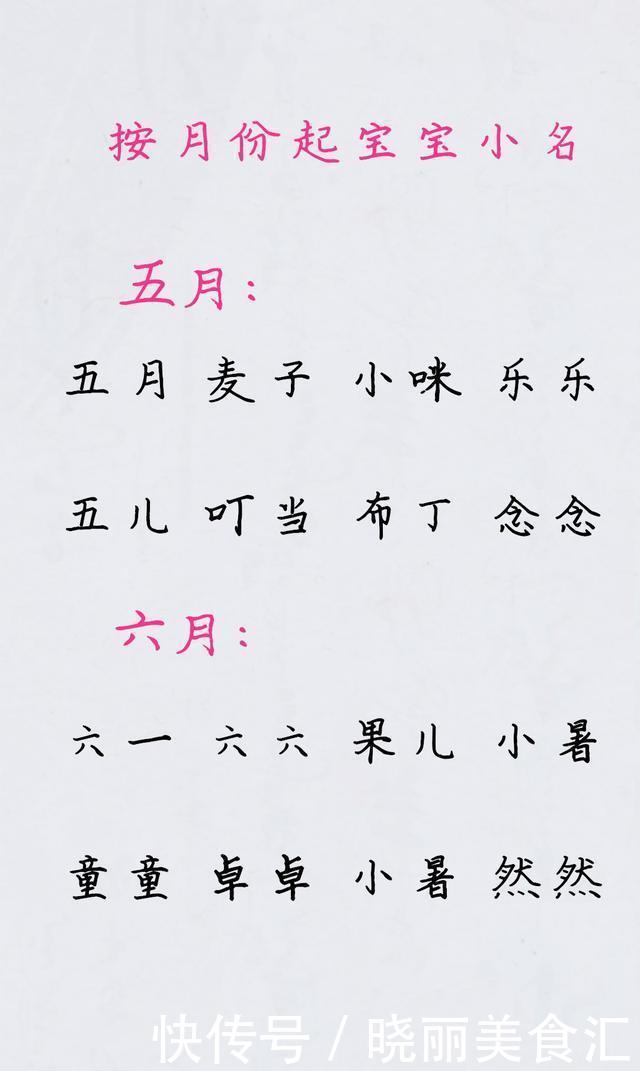 按月份起宝宝小名
五月：
五月 麦子 小咪 乐乐
五儿 叮当 布丁 念念
六月：
六一 六六 果儿 小暑
童童 卓卓 小暑 然然
快传号/晓丽美食汇